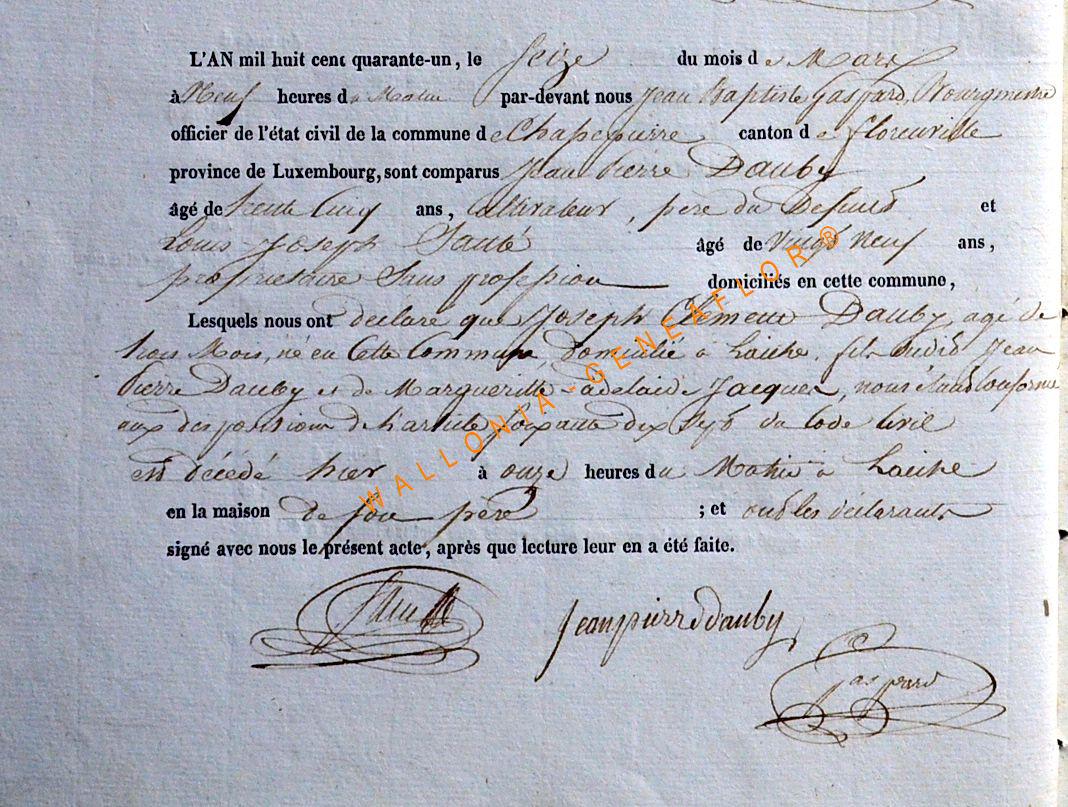 L'AN mil huit cent quarante-un, le Seize du mois de Mars
à Neuf heures du Matin par-devant nous Jean Baptiste Gaspard, Bourgmestre
officier de l'état civil de la commune de Chapepierre, canton de florenville
province de Luxembourg, sont comparus Jean Pierre Dauby
âgé de trente Cinq ans, Cultivateur, père du Defunt et
Louis Joseph Santé âgé de Vingt Neuf ans,
propriétaire Sans profession domiciliés en cette commune,
Lesquels nous ont déclaré que Joseph Clement Dauby, agé de
trois Mois, né en Cette Commune, domicilié à Laiche, fils dudit Jean
Pierre Dauby et de Margueritte adelaide Jacques, nous étant Conformé
aux dispositions de l'article Soixante dix Sept du Code Civil
est décédé hier à onze heures du Matin à Laiche
en la maison de son père ; et ont les déclarants
signé avec nous le présent acte, après que lecture leur en a été faite.
Jean pierre dauby
Gaspard
WALLONIA-GENEAFLOR®